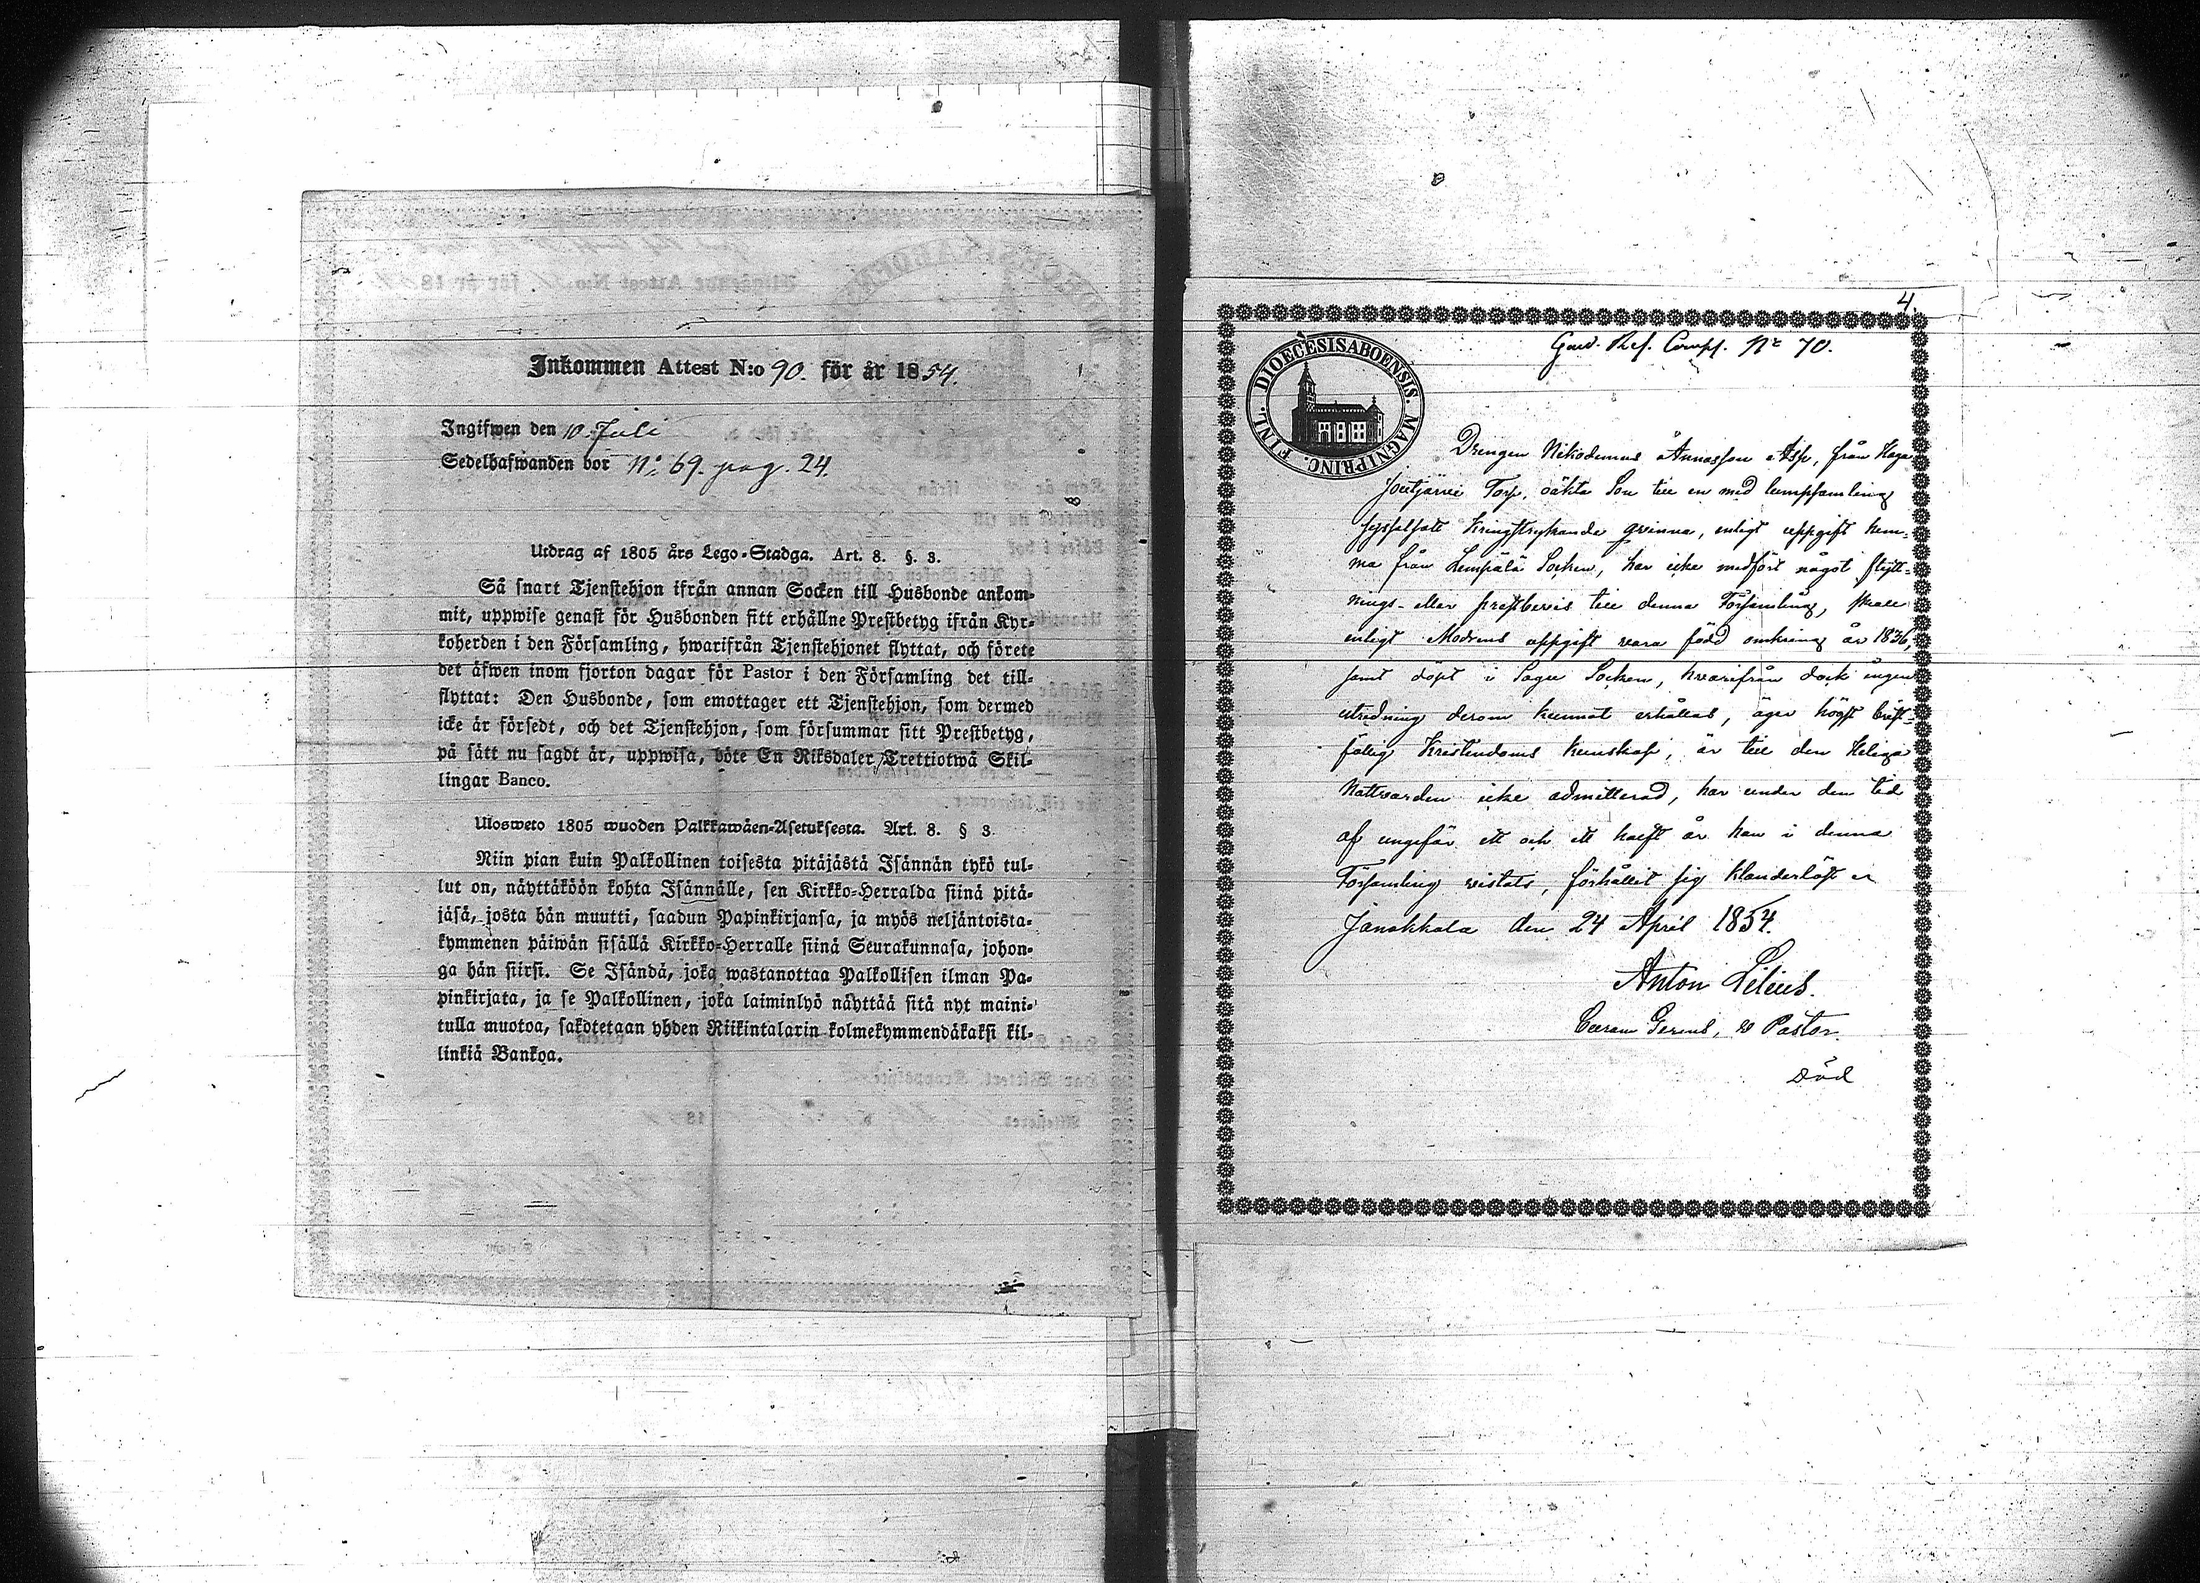 Inkommen Attest N:o 90. för år 1854.
Ingifwen den 10 Juli
Sedelhafwanden bor N:o 69. pag. 24.
Utdrag af 1805 års Lego-Stadga. Art. 8. §. 3.
Så snart Tjenstehjon ifrån annan Socken till Husbonde ankom-
mit, uppwise genast för Husbonden sitt erhållne Prestbetyg ifrån Kyr-
koherden i den Församling, hwarifrån Tjenstehjonet flyttat, och förete
det äfwen inom fjorton dagar för Pastor i den Församling det till-
flyttat: Den Husbonde, som emottager ett Tjenstehjon, som dermed
icke är försedt, och det Tjenstehjon, som försummar sitt Prestbetyg,
på sätt nu sagdt är, uppwisa, böte En Riksdaler Trettiotwå Skil-
lingar Banco.
Ulosweto 1805 wuoden Palkkawäen-Asetuksesta. Art. 8. § 3.
Niin pian kuin Palkollinen toisesta pitäjästä Isännän tykö tul-
lut on, näyttäköön kohta Isännälle, sen Kirkko-Herralda siinä pitä-
jäsä, josta hän muutti, saadun Papinkirjansa, ja myös neljäntoista-
kymmenen päiwän sisällä Kirkko-Herralle siinä Seurakunnasa, johon-
ga hän siirsi. Se Isändä, joka wastanottaa Palkollisen ilman Pa-
pinkirjata, ja se Palkollinen, joka laiminlyö näyttää sitä nyt maini-
tulla muotoa, sakotetaan yhden Riikintalarin kolmekymmendäkaksi kil-
linkiä Bankoa.
4.
Comp. No 70.
DIOECESIS ABOENSIS. MAGNI PRINC. FINL.
Drengen Nikodemus Annasson Asp, från Haga
Joutjärvi Torp, oäkta Son till en med lumpsamling
sysselsatt kringstrykande qvinna, enligt uppgift hem-
ma från Lempälä Socken, har icke medfört något flytt-
nings- eller prestbevis till denna Församling, skall
enligt Modrens uppgift vara född omkring år 1836,
samt döpt i Sagu Socken, hvarifrån dock ingen
utredning derom kunnat erhållas, äger högst brist-
fällig Kristendoms kunskap, är till den Heliga
Nattvarden icke admitterad, har under den tid
af ungefär ett och ett halft år han i denna
Församling vistats, förhållit sig klanderlöst
Janakkala den 24 April 1854.
Anton Lilius.
v Pastor.
Död